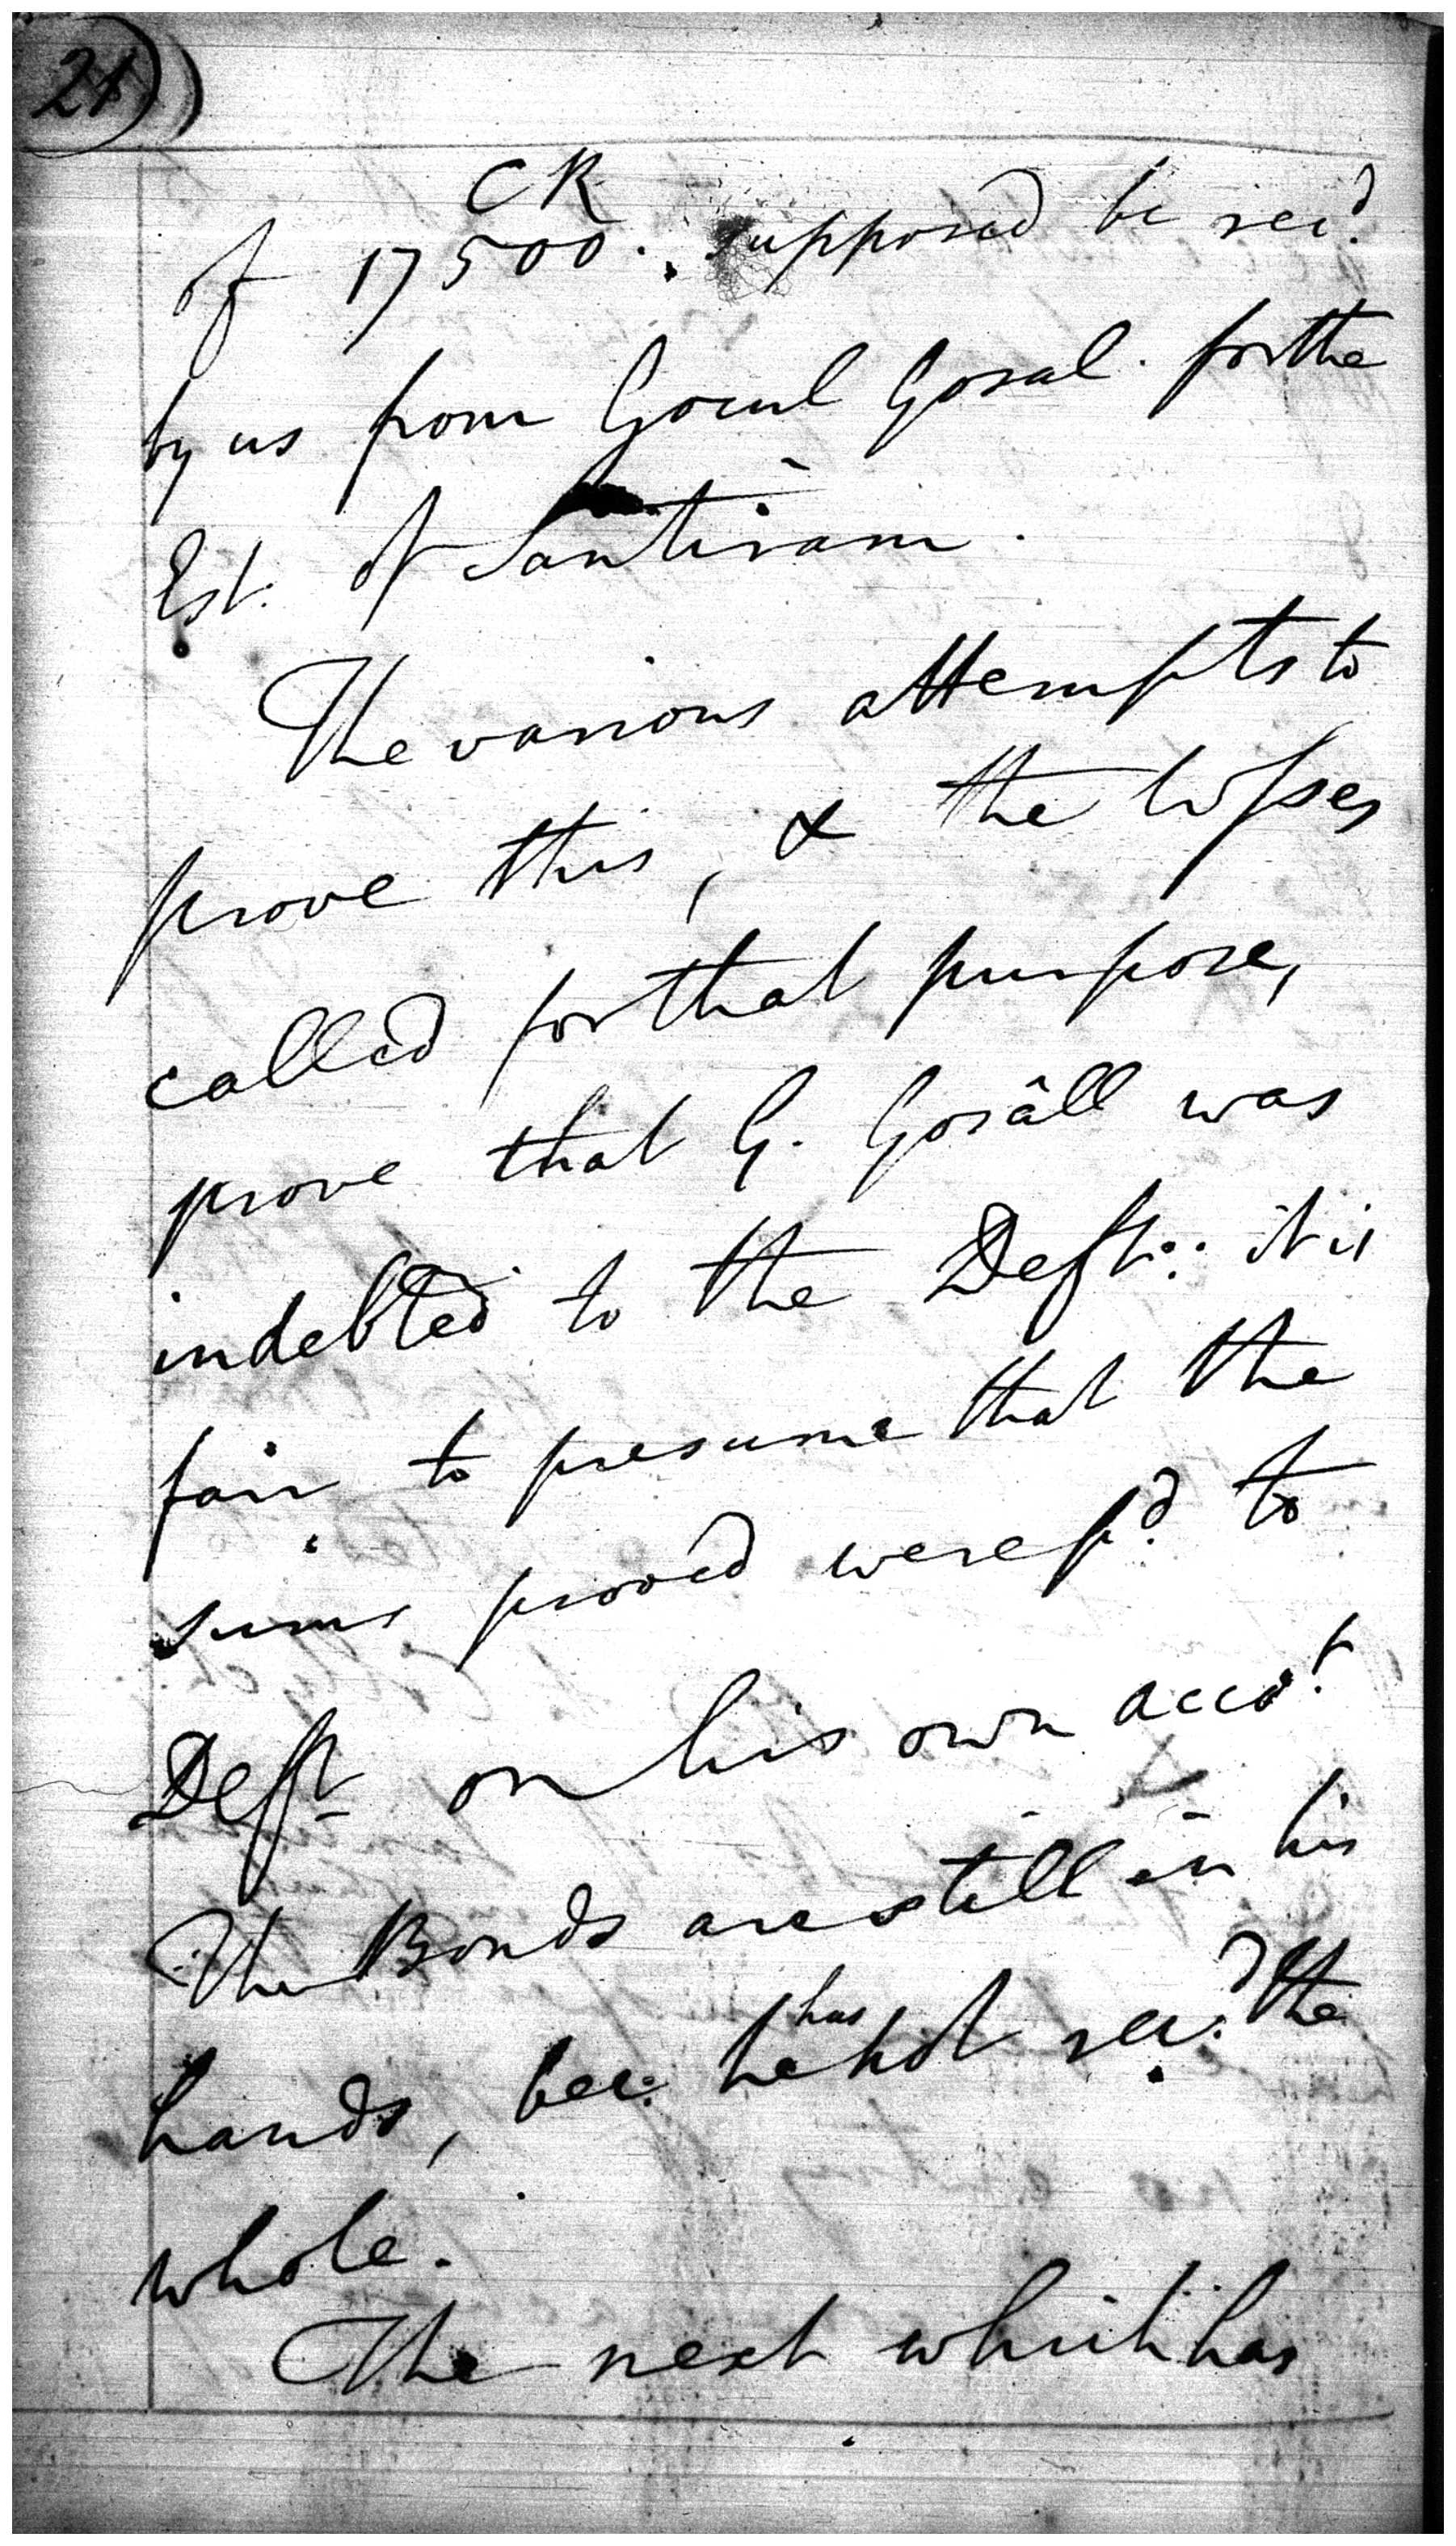 21
CR
of 17500. supposed be recd.
by us from Gocul Gosal. for the
Est. of Santirâm.
The various attempts to
prove this, & the wſses
called for that purpose,
prove that G. Gosâll was
indebted to the Deft.: it is
fair to presume that the
sums proved were pd. to
Deft. on his own accot.
The Bonds are still in his
has
hands, bec: he not recd. the
whole.
The next which has